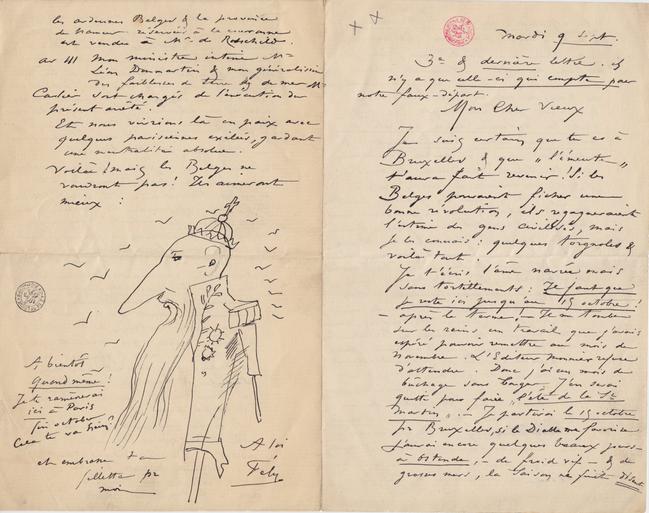 Mardi 9 Sept.
3me & dernière lettre. &
n'y a que celle-ci qui compte pour
notre faux-départ.
Mon Cher Vieux
Je suis certain que tu es à
Bruxelles & que "l'émeute"
t'aura fait revenir! Si les
Belges pouvaient ficher une
bonne révolution, ils regagneraient
l'estime des gens civilisés, mais
je les connais: quelques torgnoles &
voilà tout.
Je t'écris l'âme navrée mais
sans tortillements: Il faut que
je reste ici jusqu'au 15 octobre!
- après le terme, - Je me tombe
sur les reins un travail que j'avais
espéré pouvoir remettre au mois de
Novembre. L'Editeur Monnier refuse
d'attendre. Donc j'ai un mois de
bûchage sans bouger. J'en serai
quitte pour faire "l'été de la St
Martin". - Je partirai le 15 octobre
pr Bruxelles, si le Diable me favorise
j'aurai encore quelques beaux jours
à Ostende, - de froid vif - & de
grosses mers, la saison ne finit
les ardennes Belges & la province
de Namur réservée à la couronne
est vendue à Mr de Rothschild.
ar 41 Mon ministre intime Mr
Léon Dommartin & mon généralissime
des faiblesses de terre & de mer Mr
Cartier sont chargés de l'exécution du
présent arrêté.
Et nous vivrions là en paix avec
quelques parisiennes exilées, gardant
une neutralité absolue.
Voilà! mais les Belges ne
voudront pas! Ils aimeront
mieux:
A bientôt
Quand même!
Je te ramènerai
ici à Paris
fin octobre
Cela te va
et embrasse ta
fillette pr
moi
A toi
Fély